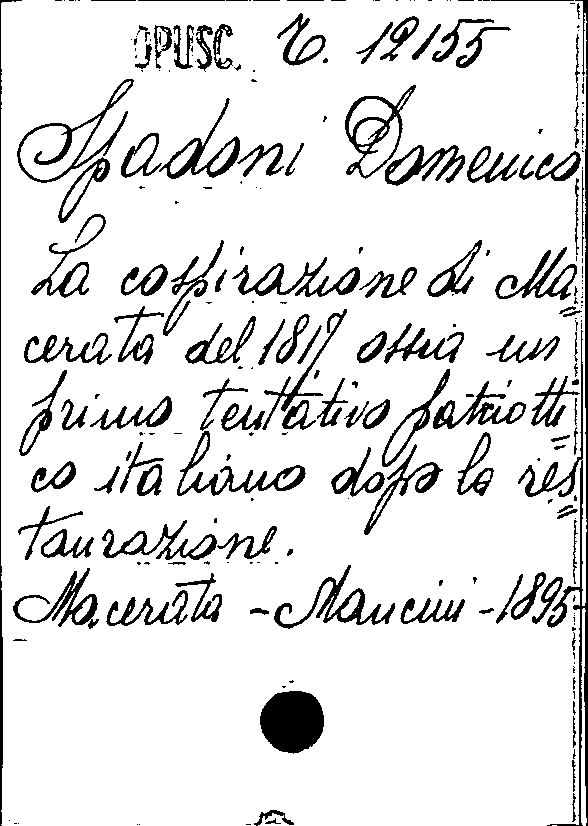 OPUSC. T. 12155
Spadoni Domenico
La cospirazione di Ma=
cerata del 1817 ossia un
primo tentativo patriotti=
co italiano dopo la res=
taurazione.
Macerata - Mancini - 1895